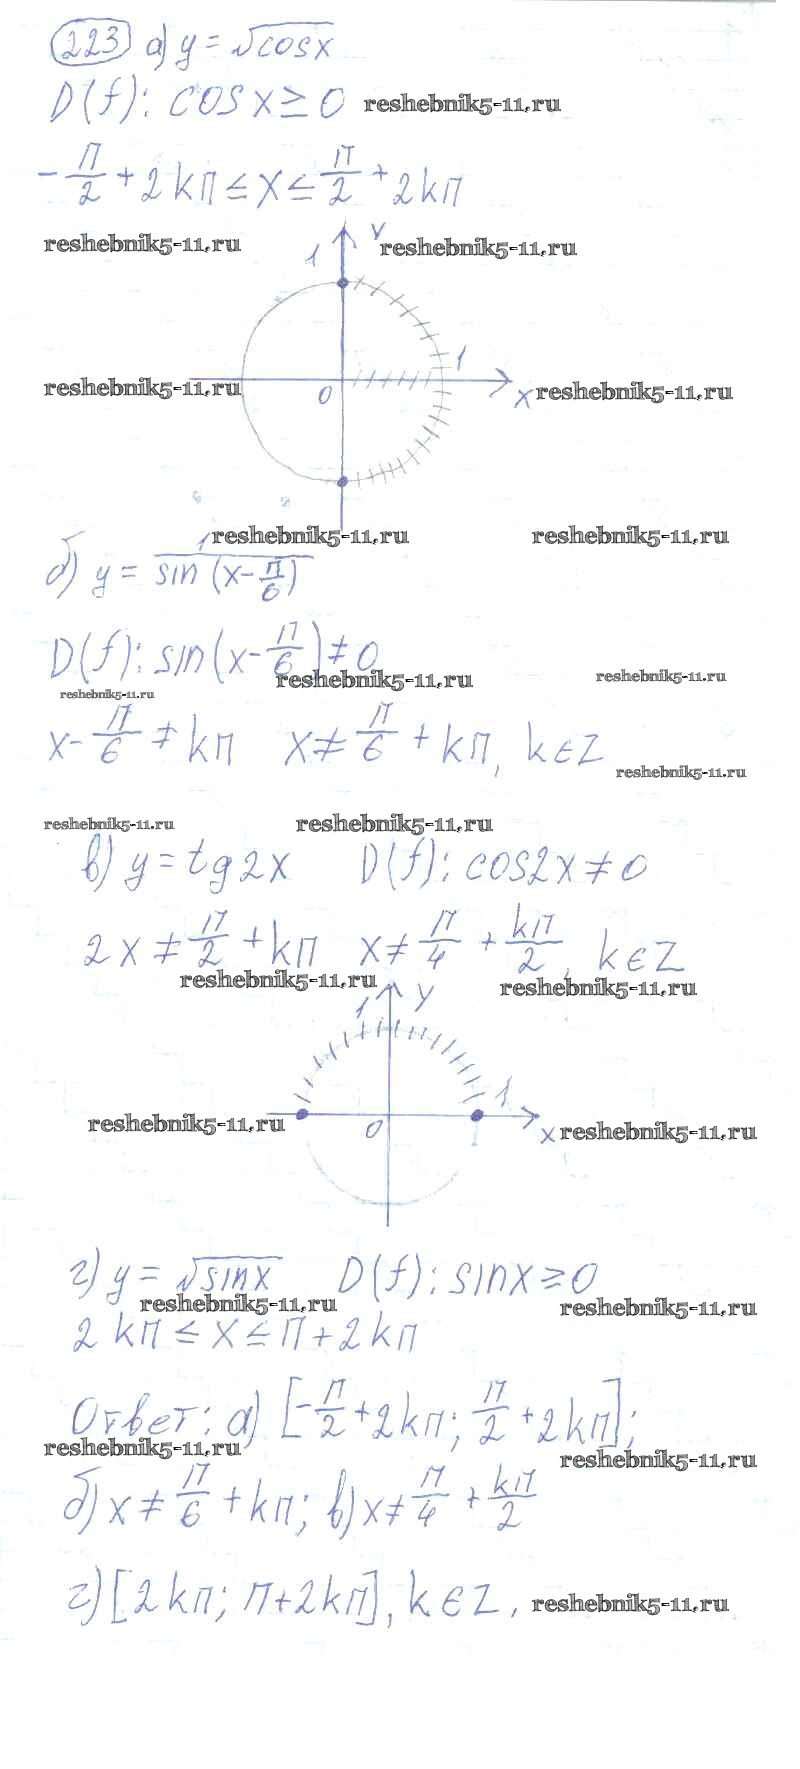 223 а) y = √cosx
D(f): cosx ≥ 0 reshebnik5-11.ru
-π/2 + 2kπ ≤ x ≤ π/2 + 2kπ
reshebnik5-11.ru 1 y reshebnik5-11.ru
1
reshebnik5-11.ru 0 x reshebnik5-11.ru
reshebnik5-11.ru reshebnik5-11.ru
б) y = 1/sin(x-π/6)
D(f): sin(x-π/6) ≠ 0
reshebnik5-11.ru reshebnik5-11.ru
reshebnik5-11.ru
x-π/6 ≠ kπ x ≠ π/6 + kπ, k∈Z
reshebnik5-11.ru
reshebnik5-11.ru reshebnik5-11.ru
в) y = tg2x D(f): cos2x ≠ 0
2x ≠ π/2 + kπ x ≠ π/4 + kπ/2, k∈Z
reshebnik5-11.ru reshebnik5-11.ru
1 y
1
reshebnik5-11.ru 0 x reshebnik5-11.ru
г) y = √sinx D(f): sinx ≥ 0
reshebnik5-11.ru reshebnik5-11.ru
2kπ ≤ x ≤ π + 2kπ
Ответ: а) [-π/2 + 2kπ; π/2 + 2kπ];
reshebnik5-11.ru reshebnik5-11.ru
б) x ≠ π/6 + kπ; в) x ≠ π/4 + kπ/2
г) [2kπ; π+2kπ], k∈Z, reshebnik5-11.ru